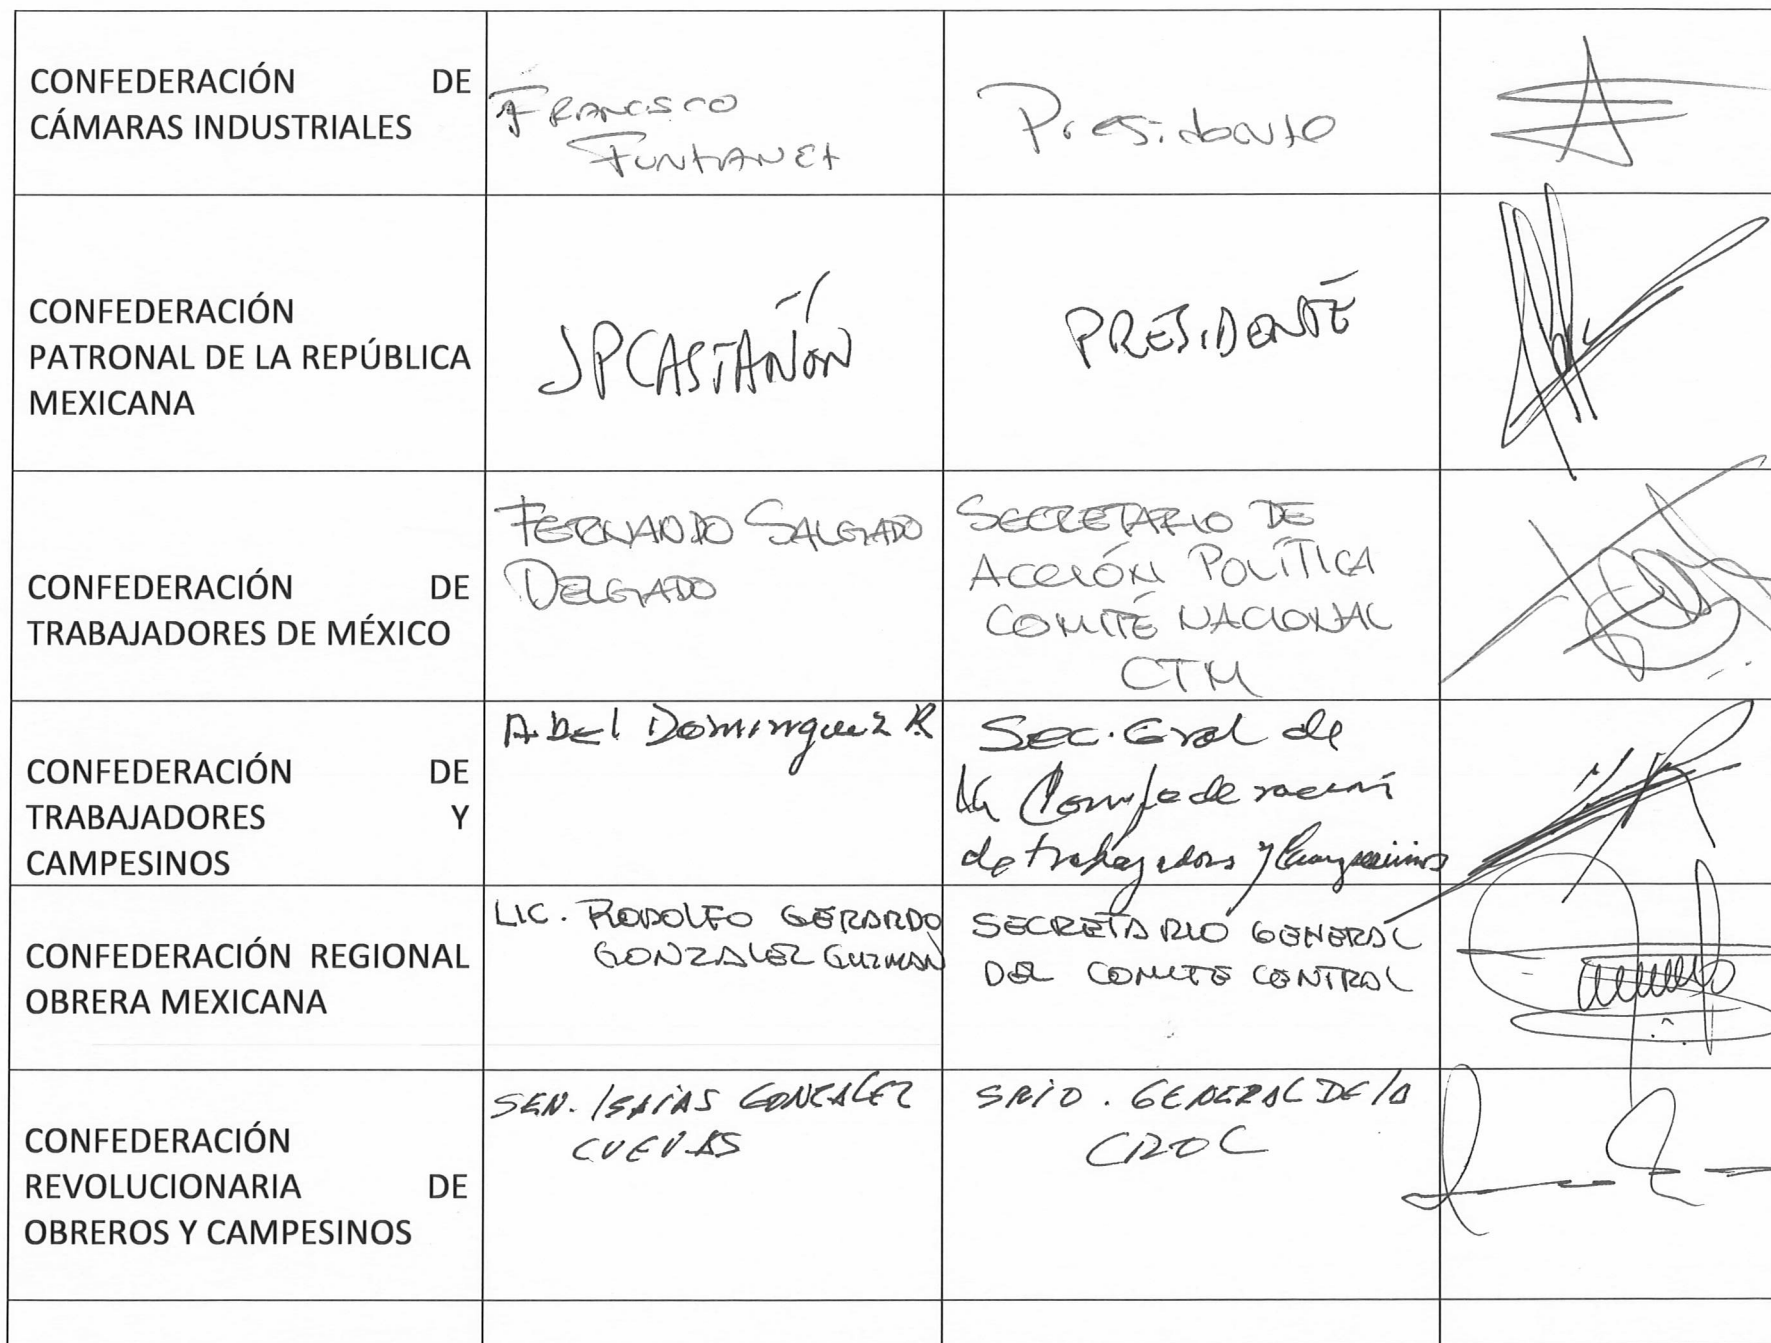 CONFEDERACIÓN DE
CÁMARAS INDUSTRIALES
FRANCISCO
FUNTANET
Presidente
CONFEDERACIÓN
PATRONAL DE LA REPÚBLICA
MEXICANA
JPCASTAÑÓN
PRESIDENTE
CONFEDERACIÓN DE
TRABAJADORES DE MÉXICO
FERNANDO SALGADO
DELGADO
SECRETARIO DE
ACCIÓN POLÍTICA
COMITÉ NACIONAL
CTM
CONFEDERACIÓN DE
TRABAJADORES Y
CAMPESINOS
Abel Dominguez R
Sec. Gral de
la Confederación
de trabajadores y Campesinos
CONFEDERACIÓN REGIONAL
OBRERA MEXICANA
LIC. RODOLFO GERARDO
GONZALEZ GUZMAN
SECRETARIO GENERAL
DEL COMITE CENTRAL
CONFEDERACIÓN
REVOLUCIONARIA DE
OBREROS Y CAMPESINOS
SEN. ISAIAS GONZALEZ
CUEVAS
SRIO. GENERAL DE la
CROC